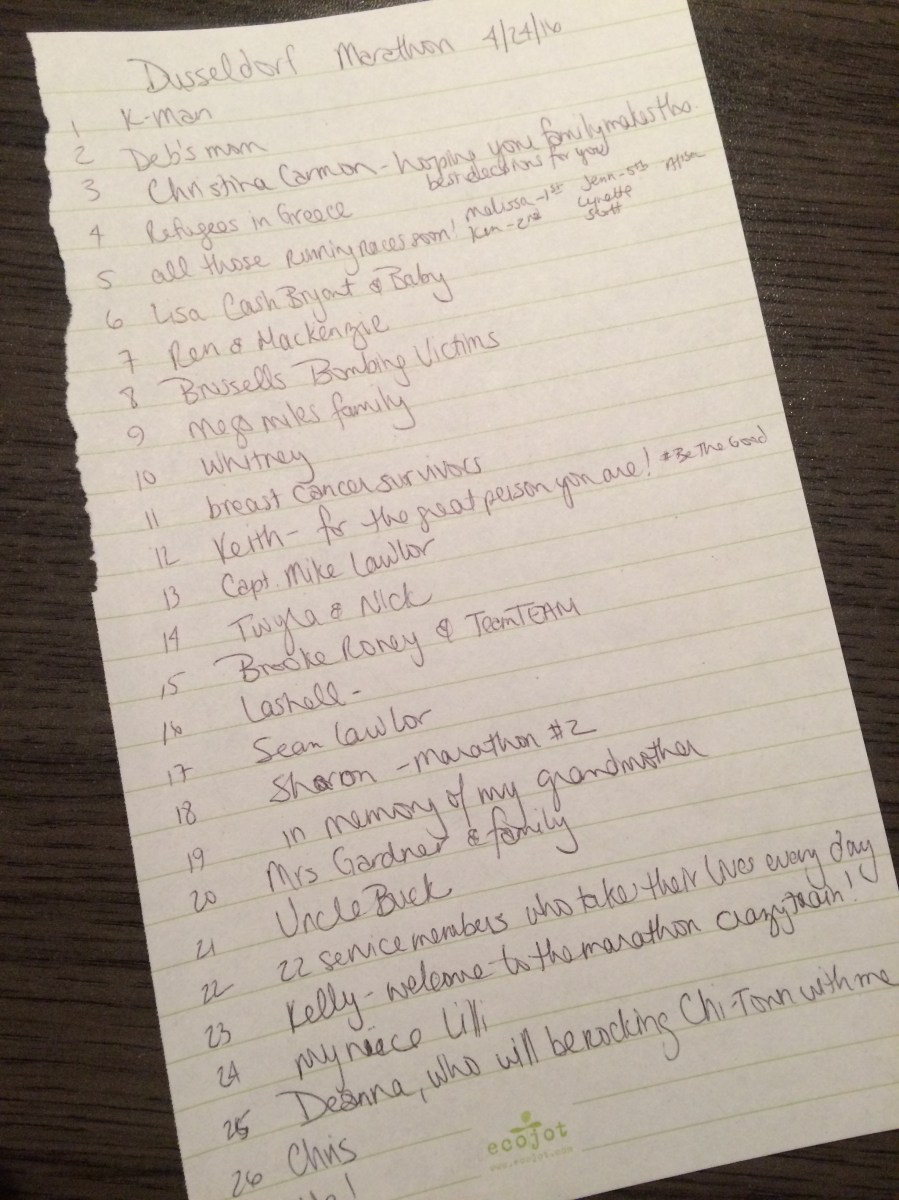 Dusseldorf Marathon 4/24/16
1 K-Man
2 Deb's mom
3 Christina Carmon - hoping your family makes the
best decisions for you!
4 Refugees in Greece
5 all those running races soon! Melissa - 1st Jenn - 5th Alisa
Ken - 2nd Lynette
Scott
6 Lisa Cash Bryant & Baby
7 Ren & Mackenzie
8 Brussells Bombing Victims
9 mega miles family
10 Whitney
11 breast cancer survivors
12 Keith - for the great person you are! #BeTheGood
13 Capt. Mike Lawlor
14 Twyla & Nick
15 Brooke Roney & TeamTEAM
16 Lashell -
17 Sean Lawlor
18 Sharon - marathon #2
19 in memory of my grandmother
20 Mrs Gardner & family
21 Uncle Buck
22 22 service members who take their lives every day
23 Kelly - welcome to the marathon crazy train!
24 my niece Lilli
25 Deanna, who will be rocking Chi-Town with me
26 Chris
ecojot
www.ecojot.com